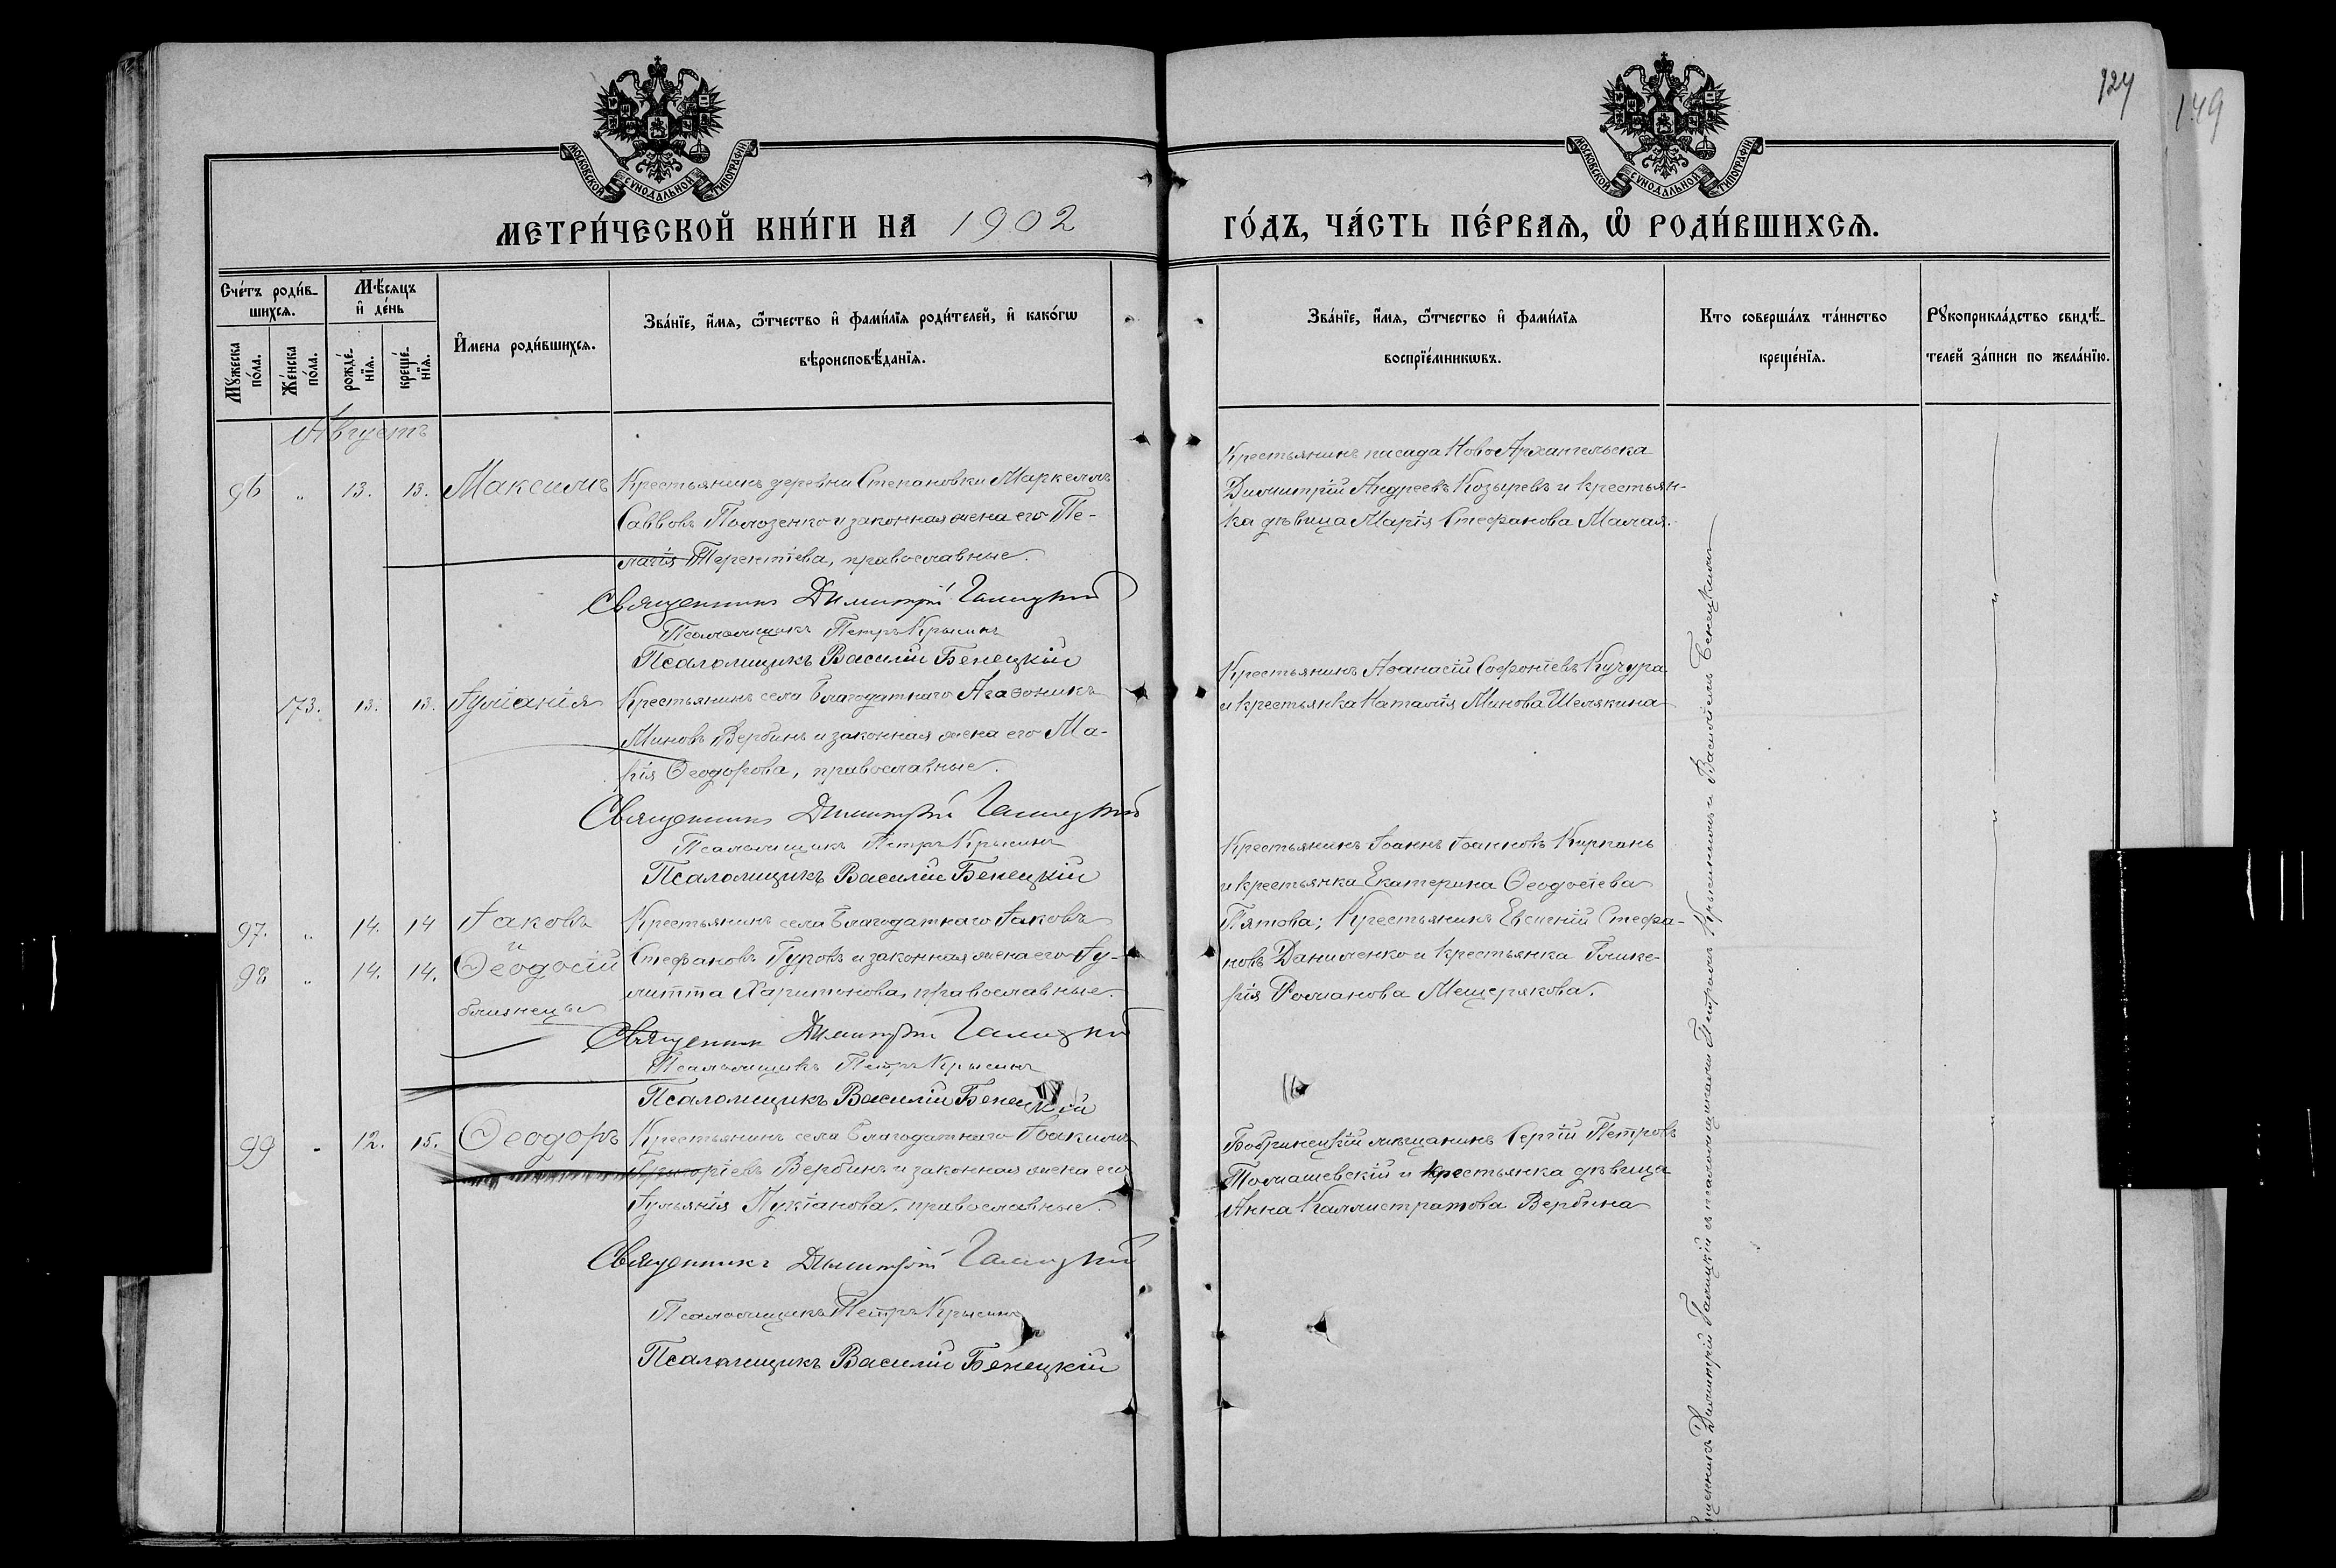 124
149
МОСКОВСКОЙ СѴНОДАЛЬНОЙ ТИПОГРАФІИ
МОСКОВСКОЙ СѴНОДАЛЬНОЙ ТИПОГРАФІИ
МЕТРИ́ЧЕСКОЙ КНИ́ГИ НА 1902
ГО́ДЪ, ЧА́СТЬ ПЕ́РВАѦ, Ѡ҆ РОДИ́ВШИХСѦ.
Сче́тъ роди́в-
шихсѧ.
Мꙋ́жеска по́ла.
Же́нска по́ла.
Мѣ́сѧцъ
и҆ де́нь
рожде́-
нїѧ.
креще́-
нїѧ.
И҆́мена роди́вшихсѧ.
Зва́нїе, и҆́мѧ, ѻ҆́тчество и҆ фами́лїѧ роди́телей, и҆ како́гѡ
вѣроисповѣ́данїѧ.
Зва́нїе, и҆́мѧ, ѻ҆́тчество и҆ фами́лїѧ
воспрїе́мникѡвъ.
Кто соверша́лъ та́инство
креще́нїѧ.
Рꙋкоприкла́дство свидѣ́-
телей за́писи по жела́нїю.
Августъ
96 " 13. 13. Максимъ
Крестьянинъ деревни Степановки Маркеллъ
Саввовъ Полозенко и законная жена его Пе-
лагія Терентіева, православные.
Священникъ Димитрій Галицкій
Псаломщикъ Петръ Крысинъ
Псаломщикъ Василій Бенецкій
Крестьянинъ посада НовоАрхангельска
Димитрій Андреевъ Козыревъ и крестьян-
ка дѣвица Марія Стефанова Малая.
173. 13. 13. Іуліанія
Крестьянинъ села Благодатнаго Агаѳоникъ
Миновъ Вербинъ и законная жена его Ма-
рія Ѳеодорова, православные.
Священникъ Димитрій Галицкій
Псаломщикъ Петръ Крысинъ
Псаломщикъ Василій Бенецкій
Крестьянинъ Аѳанасій Софоніевъ Кучура
и крестьянка Наталія Минова Шелякина
97. " 14. 14 Іаковъ
и
98 " 14. 14. Ѳеодосій
близнецы
Крестьянинъ села Благодатнаго Іаковъ
Стефановъ Гуровъ и законная жена его Іу-
литта Харитонова, православные.
Священникъ Димитрій Галицкій
Псаломщикъ Петръ Крысинъ
Псаломщикъ Василій Бенецкій
Крестьянинъ Іоаннъ Іоанновъ Кирпань
и крестьянка Екатерина Ѳеодосіева
Пятова; Крестьянинъ Евсигній Стефа-
новъ Даниленко и крестьянка Глике-
рія Романова Мещерякова.
99 - 12. 15. Ѳеодоръ
Крестьянинъ села Благодатнаго Іоакимъ
Григоріевъ Вербинъ и законная жена его
Іульянія Лукіанова, православные.
Священникъ Димитрій Галицкій
Псаломщикъ Петръ Крысинъ
Псаломщикъ Василій Бенецкій
Бобринецкій мѣщанинъ Сергій Петровъ
Томашевскій и крестьянка дѣвица
Анна Каллистратова Вербина
Димитрій Галицкій съ псаломщиками Петромъ Крысинымъ и Василіемъ Бенецкимъ